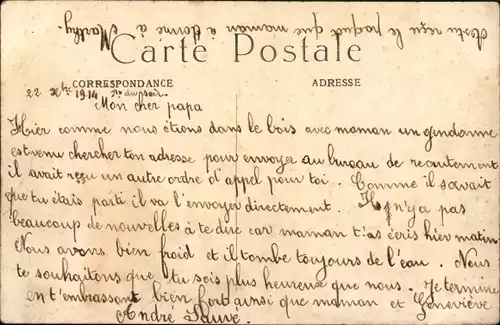 As-tu reçu le paquet que maman a donné à Marthy.
Carte Postale
CORRESPONDANCE
ADRESSE
22 Xbre 1914 7h du soir.
Mon cher papa
Hier comme nous étions dans le bois avec maman un gendarme
est venu chercher ton adresse pour envoyer au bureau de recrutement
il avait reçu un autre ordre d'appel pour toi. Comme il savait
que tu étais parti il va l'envoyer directement. Il n'y a pas
beaucoup de nouvelles à te dire car maman t'as écris hier matin
Nous avons bien froid et il tombe toujours de l'eau. Nous
te souhaitons que tu sois plus heureuse que nous. Je termine
en t'embrassant bien fort ainsi que maman et Geneviève
André Sauvé.